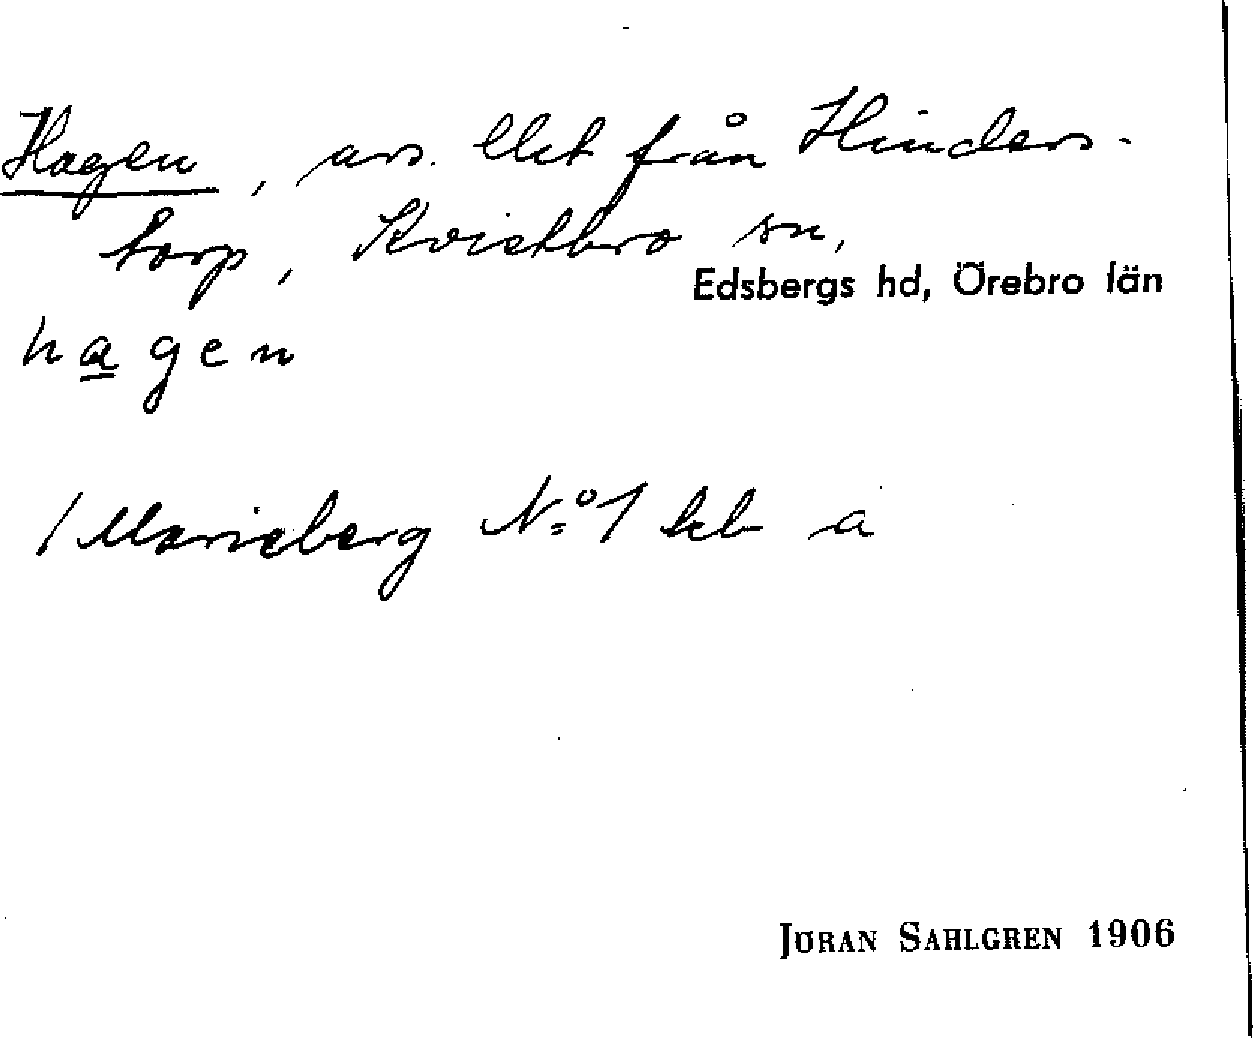 Hagen, avs. fr från Hinders-
torp, Kvistbro sn,
Edsbergs hd, Örebro län
hagen
/ Marieberg N:o 1 kb a
JÖRAN SAHLGREN 1906